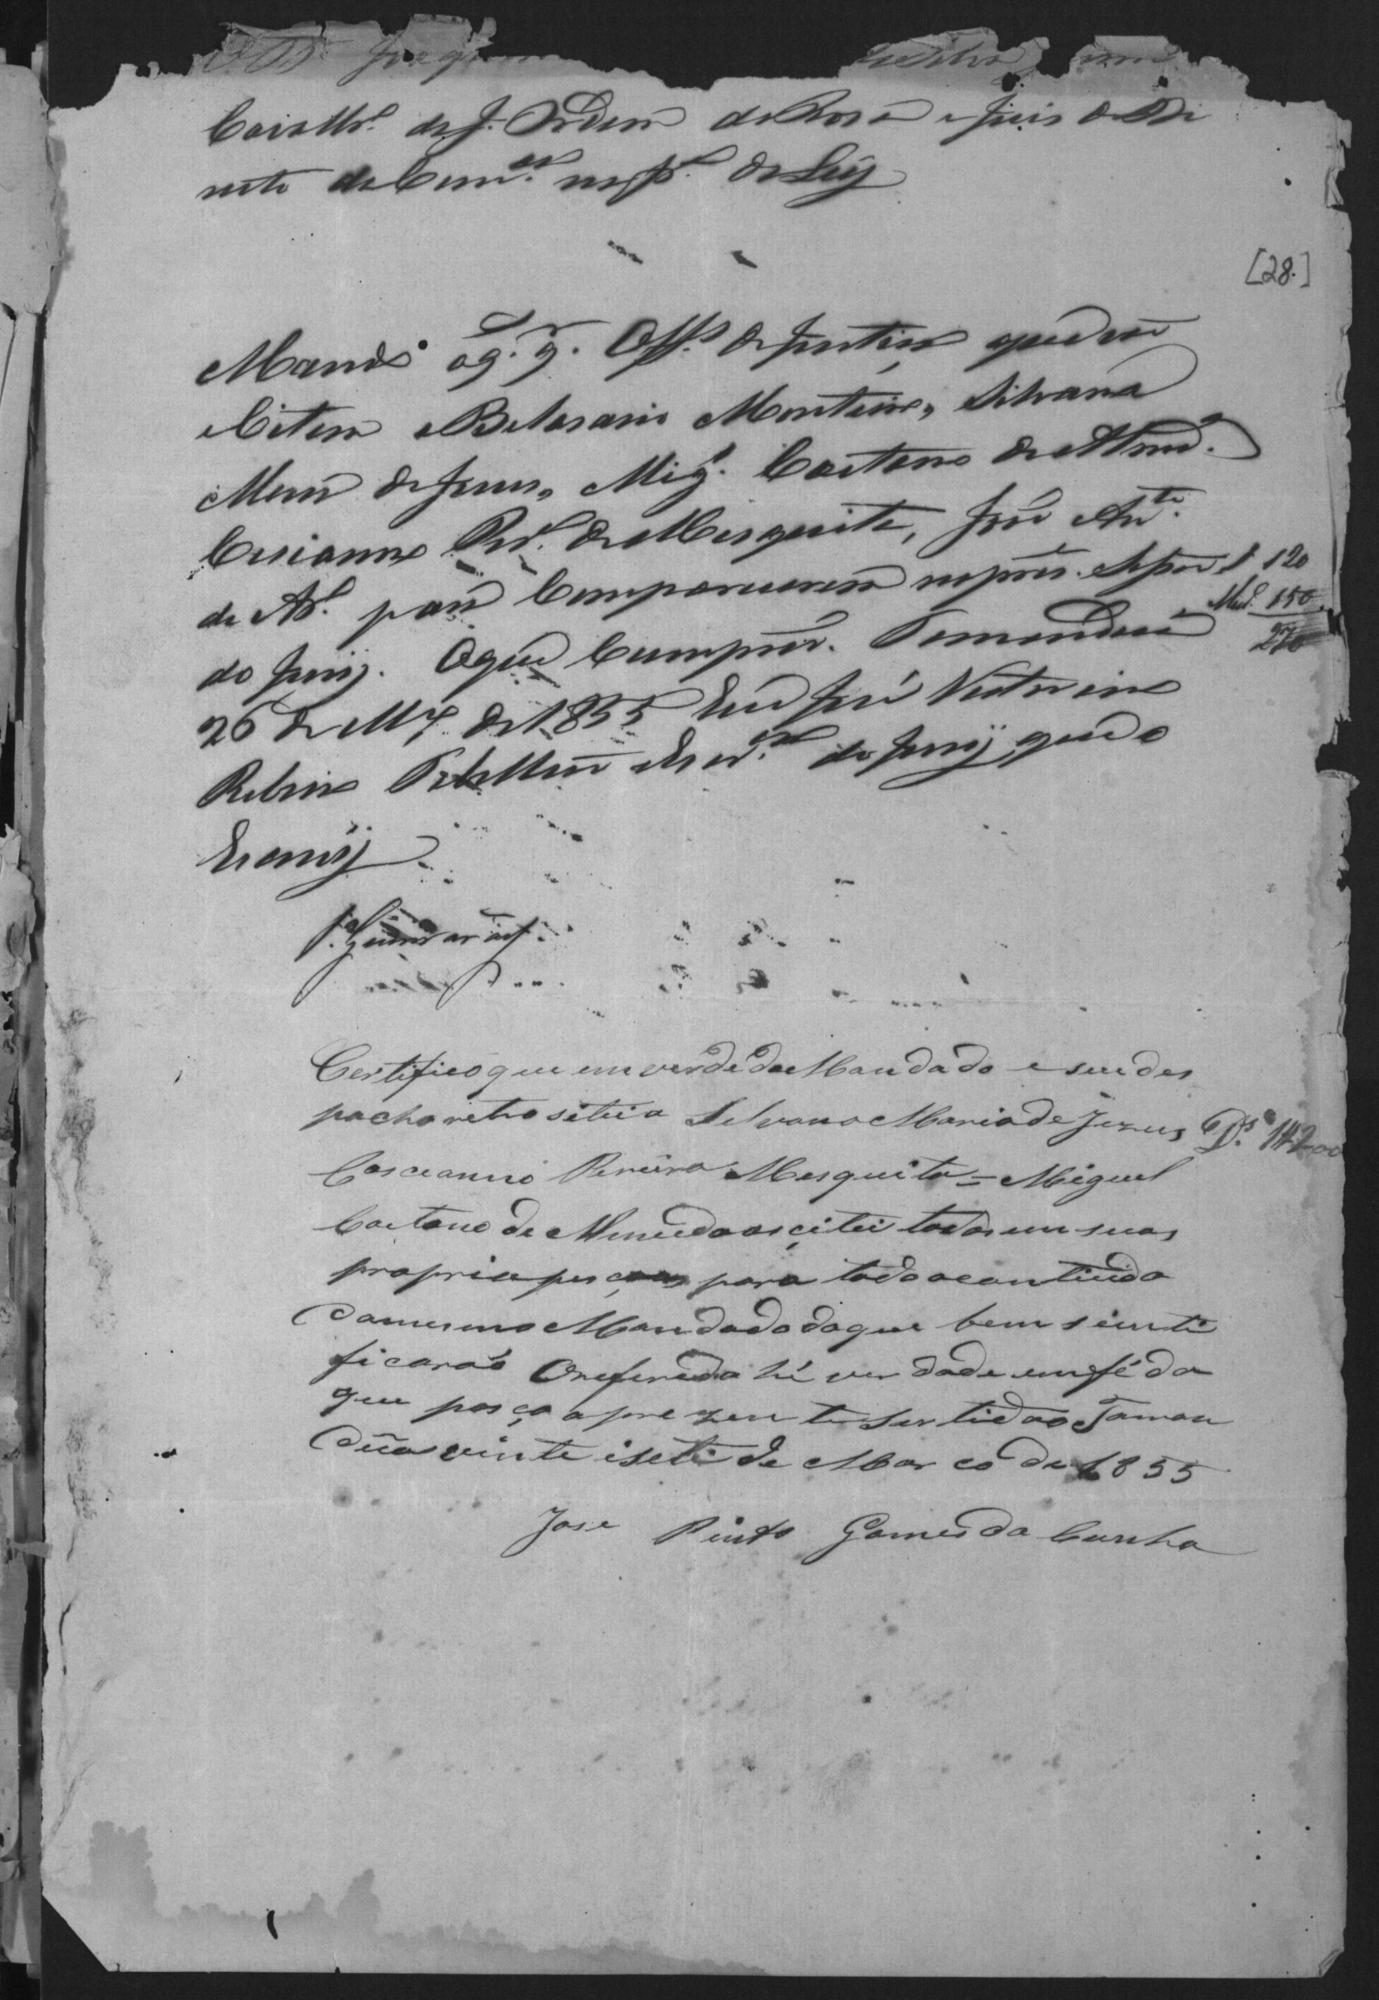 O Dr. Joaqm
Cavalhr.º da I. Ordem da Rosa e Juis de Di
reito da Com.ca na f.ª da Ley
[28.]
Mando a q. q. Off.l de Justiça que em
Citem a Belasario Monteiro, Silvana
Maria de Jesus, Mig.l Caetano de Almd.ª
Cassianno Per.ª de Mesquita, José Ant.º
de Ar.º para Comparecerem na prez.e Seção
120
Md.º 150
270
do Jury. O que Cumprão. Tamanduá
26 de M.ço de 1855 Eu José Victorino
Ribeiro Escr.m do Jury que o
Escrevy
Guimarães
Certifico que em verde do Mandado e seu des
pacho retro sitei a Selvana Maria de Jezus
D.s 14200
Casceanno Pereira Mesquita = Miguel
Caetano de Almeida os citei todos em suas
propria peçoas para todo o contiudo
do mesmo Mandado do que bem sienti
ficarão O referido hé verdade em fé do
que paço a prezente Sertidão Taman
duá vinte e seti de Marco de 1855
Jose Pinto Gomes da Cunha